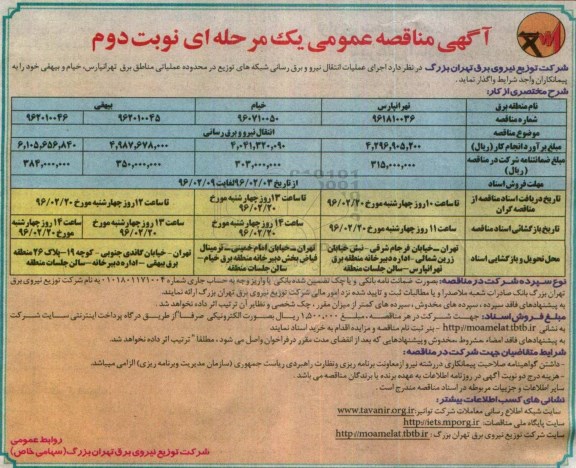 آگهی مناقصه عمومی یک مرحله ای نوبت دوم
شرکت توزیع نیروی برق تهران بزرگ در نظر دارد اجرای عملیات انتقال نیرو و برق رسانی شبکه های توزیع در محدوده عملیاتی مناطق برق تهرانپارس، خیام و بیهقی خود را به
پیمانکاران واجد شرایط واگذار نماید.
شرح مختصری از کار:
نام منطقه برق تهرانپارس خیام بیهقی
شماره مناقصه ۹۶۱۸۱۰۰۳۶ ۹۶۰۷۱۰۰۵۰ ۹۶۲۰۱۰۰۴۵ ۹۶۲۰۱۰۰۴۶
موضوع مناقصه انتقال نیرو و برق رسانی
مبلغ برآورد انجام کار (ریال) ۴,۲۹۶,۹۰۵,۲۰۰ ۴,۰۴۱,۳۲۰,۰۹۰ ۴,۹۸۷,۶۷۸,۰۰۰ ۶,۱۰۵,۶۵۶,۸۴۰
مبلغ ضمانتنامه شرکت در مناقصه (ریال) ۳۱۵,۰۰۰,۰۰۰ ۳۰۳,۰۰۰,۰۰۰ ۳۵۰,۰۰۰,۰۰۰ ۳۸۴,۰۰۰,۰۰۰
مهلت فروش اسناد از تاریخ ۹۶/۰۲/۰۳ لغایت ۹۶/۰۲/۰۹
تاریخ دریافت اسناد مناقصه از مناقصه گران تا ساعت ۱۰ روز چهارشنبه مورخ ۹۶/۰۲/۲۰ تا ساعت ۱۳ روز چهارشنبه مورخ ۹۶/۰۲/۲۰ تا ساعت ۱۲ روز چهارشنبه مورخ ۹۶/۰۲/۲۰
تاریخ بازگشائی اسناد مناقصه ساعت ۱۱ روز چهارشنبه مورخ ۹۶/۰۲/۲۰ ساعت ۱۴ روز چهارشنبه مورخ ۹۶/۰۲/۲۰ ساعت ۱۳ روز چهارشنبه مورخ ۹۶/۰۲/۲۰ ساعت ۱۴ روز چهارشنبه مورخ ۹۶/۰۲/۲۰
محل تحویل و بازگشایی اسناد تهران-خیابان فرجام شرقی - نبش خیابان زرین شمالی - اداره دبیرخانه منطقه برق تهرانپارس - سالن جلسات منطقه تهران-خیابان امام خمینی - ترمینال فیاض بخش دبیرخانه منطقه برق خیام - سالن جلسات منطقه تهران - خیابان گاندی جنوبی - کوچه ۱۹-پلاک ۲۶ منطقه برق بیهقی - اداره دبیرخانه - سالن جلسات منطقه
نوع سپرده شرکت در مناقصه: بصورت ضمانت نامه بانکی و یا چک تضمین شده بانکی یا واریز وجه به حساب جاری شماره ۰۱۰۱۸۰۱۱۷۱۰۰۴ به نام شرکت توزیع نیروی برق
تهران بزرگ بانک صادرات شعبه ملاصدرا و یا مطالبات ثبت و تایید شده نزد امور مالی شرکت توزیع نیروی برق تهران بزرگ ارائه نمایند.
به پیشنهادهای فاقد سپرده، سپرده های مخدوش، سپرده های کمتر از میزان مقرر، چک شخصی و نظایر آن ترتیب اثر داده نخواهد شد.
فروش اسناد: جهت شرکت در هر مناقصه، مبلغ ۱,۵۰۰,۰۰۰ ریال بصورت الکترونیکی صرفا از طریق درگاه پرداخت اینترنتی سایت شرکت
به نشانی http://moamelat.tbtb.ir - بنر ثبت نام مناقصه و مزایده اقدام به خرید اسناد نمایند.
به پیشنهادهای فاقد امضاء مشروط، مخدوش و پیشنهادهایی که بعد از انقضای مدت مقرر در فراخوان واصل می شود، مطلقا " ترتیب اثر داده نخواهد شد.
شرایط متقاضیان جهت شرکت در مناقصه:
- داشتن گواهینامه صلاحیت پیمانکاری در رشته نیرو از معاونت برنامه ریزی و نظارت راهبردی ریاست جمهوری (سازمان مدیریت و برنامه ریزی) الزامی میباشد.
- هزینه درج دو نوبت آگهی در روزنامه اطلاعات به عهده برنده یا برندگان مناقصه می باشد.
سایر اطلاعات و جزئیات مربوطه در اسناد مناقصه مندرج است.
نشانی های کسب اطلاعات بیشتر:
سایت شبکه اطلاع رسانی معاملات شرکت توانیر www.tavanir.org.ir
سایت پایگاه ملی مناقصات: http://iets.mporg.ir
سایت شرکت توزیع نیروی برق تهران بزرگ: http://moamelat.tbtb.ir
روابط عمومی
شرکت توزیع نیروی برق تهران بزرگ (سهامی خاص)